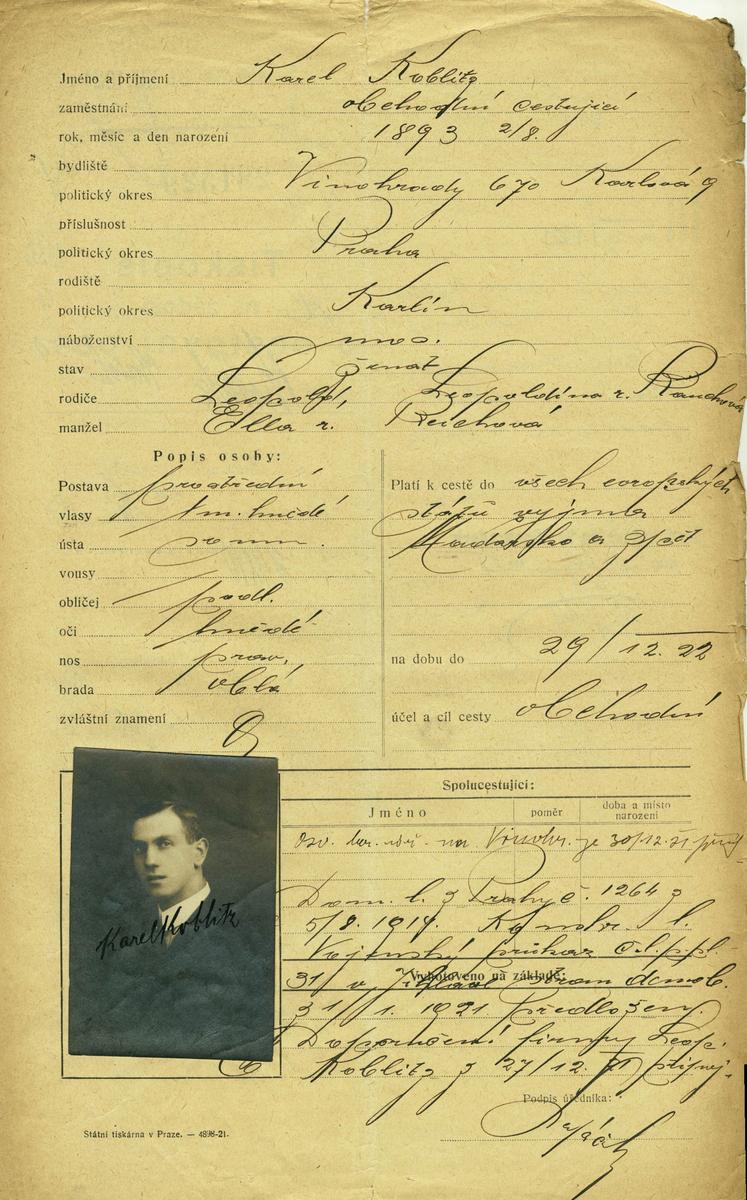 Jméno a příjmení Karel Koblitz
zaměstnání obchodní cestující
rok, měsíc a den narození 1893 2/8.
bydliště
politický okres Vinohrady 670 Karlova 9
příslušnost
politický okres Praha
rodiště
politický okres Karlín
náboženství mos.
stav ženat
rodiče Leopold, Leopoldina r. Rauchová
manžel Ella r. Reichová
Popis osoby:
Postava prostřední
vlasy tm. hnědé
ústa
vousy
obličej podl.
oči hnědé
nos prav.
brada oblá
zvláštní znamení
Platí k cestě do všech evropských
států vyjma
Maďarsko a zpět
na dobu do 29/12.22
účel a cíl cesty obchodní
Spolucestující:
Jméno poměr doba a místo narození
na Vinohr. je 30/12.21
Dom. l. z Prahy č. 1264 z
5/8. 1919.
Vojenský průkaz
Vyhotoveno na základě:
31/ v demob.
31/1. 1921 předložen.
Doporučení firmy Leop.
Koblitz z 27/12. 21
Karel Koblitz
Podpis úředníka:
Státní tiskárna v Praze. — 4898-21.